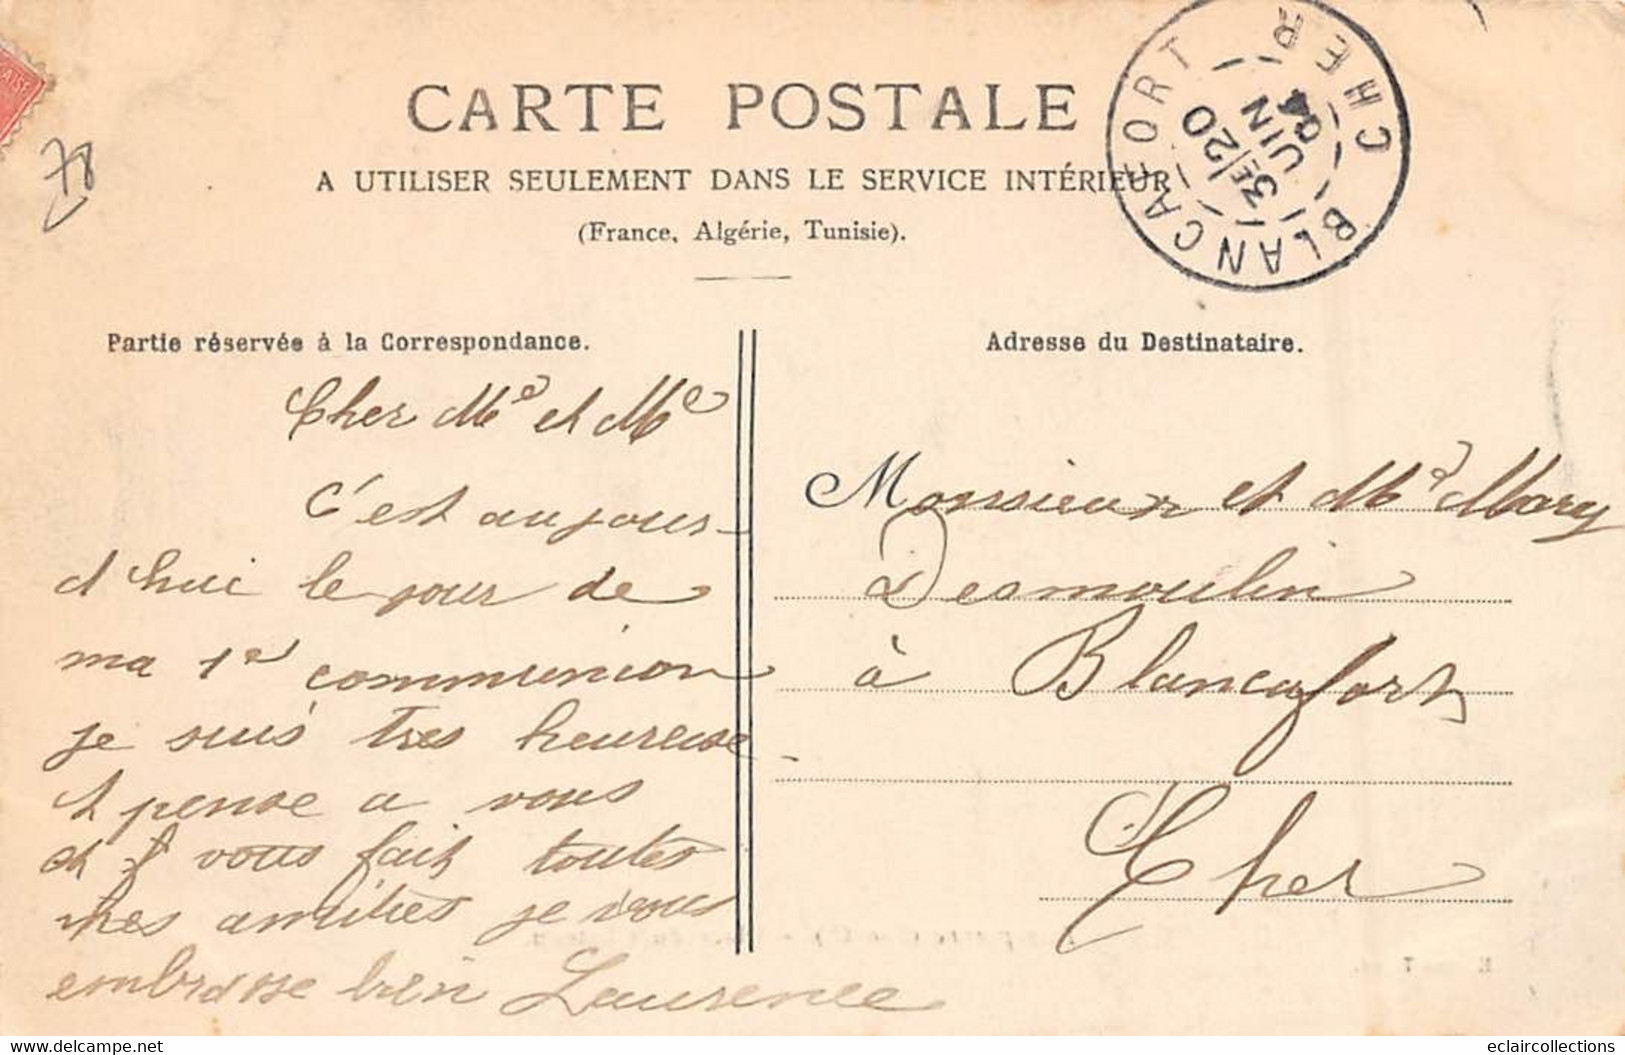 CARTE POSTALE
A UTILISER SEULEMENT DANS LE SERVICE INTÉRIEUR
(France, Algérie, Tunisie).
BLANCAFORT CHER
3E/20
JUIN
04
78
Partie réservée à la Correspondance.
Cher Md et Me
C'est aujour-
d'hui le jour de
ma 1er communion
je suis tres heureuse
et pense a vous
et vous fait toutes
mes amities je vous
embrasse bien Laurence
Adresse du Destinataire.
Monsieur et Md Mary
Desmoulin
à Blancafort
Cher
https://www.delcampe.net
eclaircollections